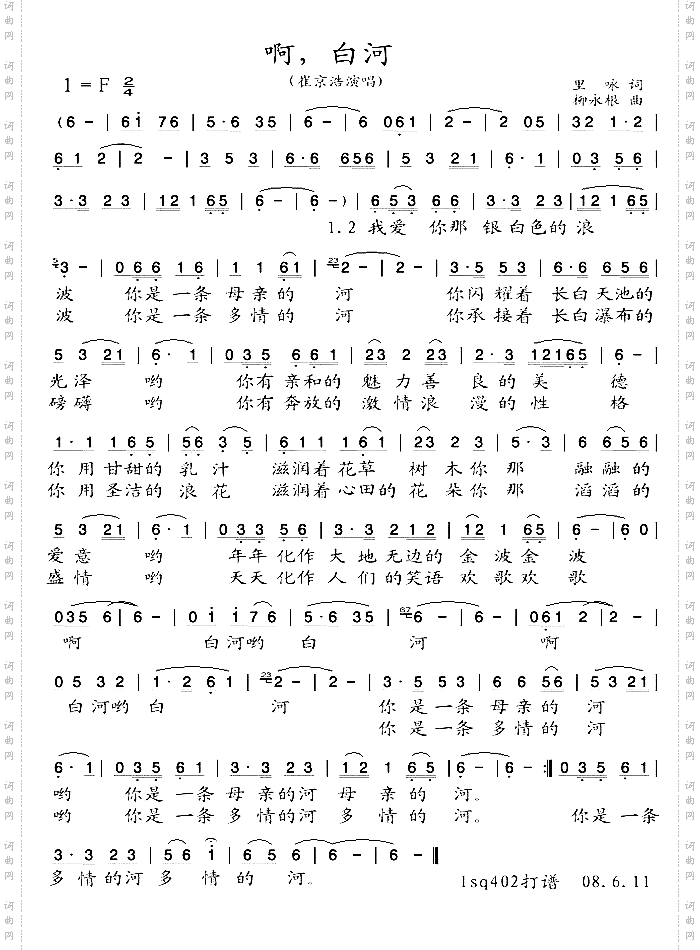 啊，白河
1=F 2/4
（崔京浩演唱）
里 咏 词
柳永根 曲
(6 - | 6i 76 | 5·6 35 | 6 - | 6 061 | 2 - | 2 05 | 32 1·2 |
61 2 | 2 - | 3 5 3 | 6·6 656 | 5 3 21 | 6· 1 | 03 56 |
3·3 23 | 12 165 | 6 - | 6 - ) | 653 66 | 3·3 23 | 12 165 |
1.2 我爱 你那 银白色的浪
3 - | 066 16 | 1 1 61 | 23 2 - | 2 - | 3·5 53 | 6·6 656 |
波 你是一条 母亲的 河 你闪耀着 长白天池的
波 你是一条 多情的 河 你承接着 长白瀑布的
5 3 21 | 6· 1 | 035 661 | 23 23 | 2·3 12165 | 6 - |
光泽 哟 你有亲和的 魅力善 良的美 德
磅礴 哟 你有奔放的 激情浪 漫的性 格
1·1 165 | 56 35 | 611 161 | 23 2 3 | 5·3 | 6 656 |
你用甘甜的乳汁 滋润着花草 树木你那 融融的
你用圣洁的浪花 滋润着心田的花 朵你那 滔滔的
5 3 21 | 6· 1 | 033 56 | 3·3 212 | 12 1 65 | 6 - | 60 |
爱意 哟 年年化作 大地无边的 金波金 波
盛情 哟 天天化作 人们的笑语 欢歌欢 歌
035 6 | 6 - | 0i i76 | 5·6 35 | 6 - | 6 - | 061 2 | 2 - |
啊 白河哟 白 河 啊
05 32 | 1·2 61 | 23 2 - | 2 - | 3·5 53 | 66 56 | 53 21 |
白河哟 白 河 你是一条 母亲的 河
你是一条 多情的 河
6·1 | 035 61 | 3·3 23 | 12 1 65 | 6 - | 6 - :‖ 035 61 |
哟 你是一条 母亲的河 母亲的 河。
哟 你是一条 多情的河 多情的 河。 你是一条
3·3 23 | 56 i | 65 6 | 6 - | 6 - ‖
多情的河 多 情 的 河。
lsq402打谱 08.6.11
词曲网